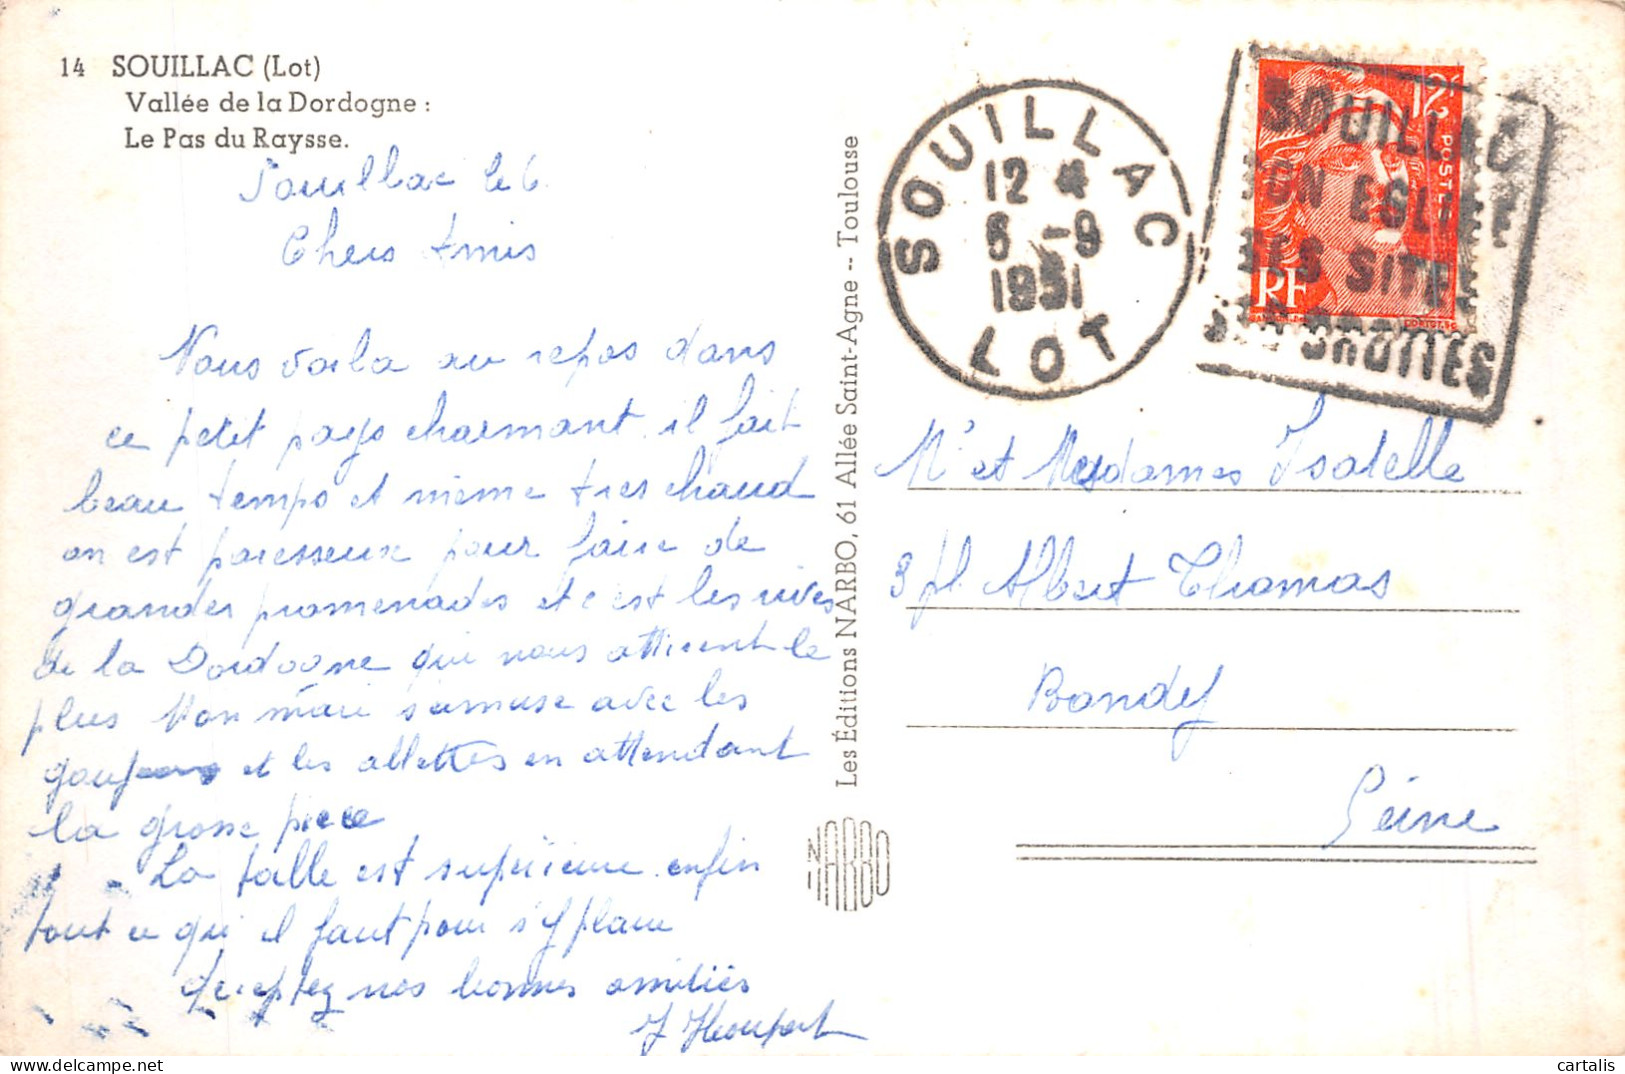 14 SOUILLAC (Lot)
Vallée de la Dordogne :
Le Pas du Raysse.
Souillac le 6
Chers Amis
Nous voila au repos dans
ce petit pays charmant il fait
beau temps et même tres chaud
on est paresseux pour faire de
grandes promenades et c'est les rives
de la Dordogne qui nous attirent le
plus Mon mari s'amuse avec les
et les ablettes en attendant
la grosse piece
La table est supérieure enfin
tout ce qu'il faut pour s'y plaire
Acceptez nos bonnes amitiés
Les Éditions NARBO, 61 Allée Saint-Agne -- Toulouse
NARBO
SOUILLAC
12 4
6 -9
1951
LOT
12F
POSTES
RF
SOUILLAC
SON EGLISE
SES SITES
SES GROTTES
Mr et Mesdames Isatelle
3 pl Albert Thomas
Bondy
Seine
cartalis